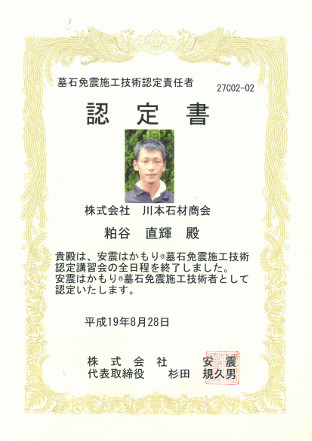 墓石免震施工技術認定責任者
27C02-02
認定書
株式会社　川本石材商会
粕谷　直輝　殿
貴殿は、安震はかもり®墓石免震施工技術
認定講習会の全日程を終了しました。
安震はかもり®墓石免震施工技術者として
認定いたします。
平成19年8月28日
株式会社　安震
代表取締役　杉田　規久男